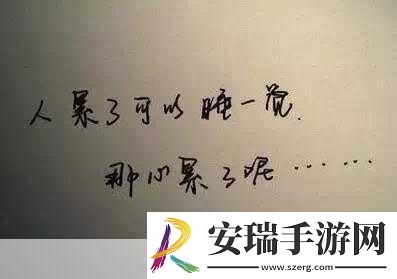 人累了可以睡一觉.
那心累了呢……
安瑞手游网
www.szerg.com